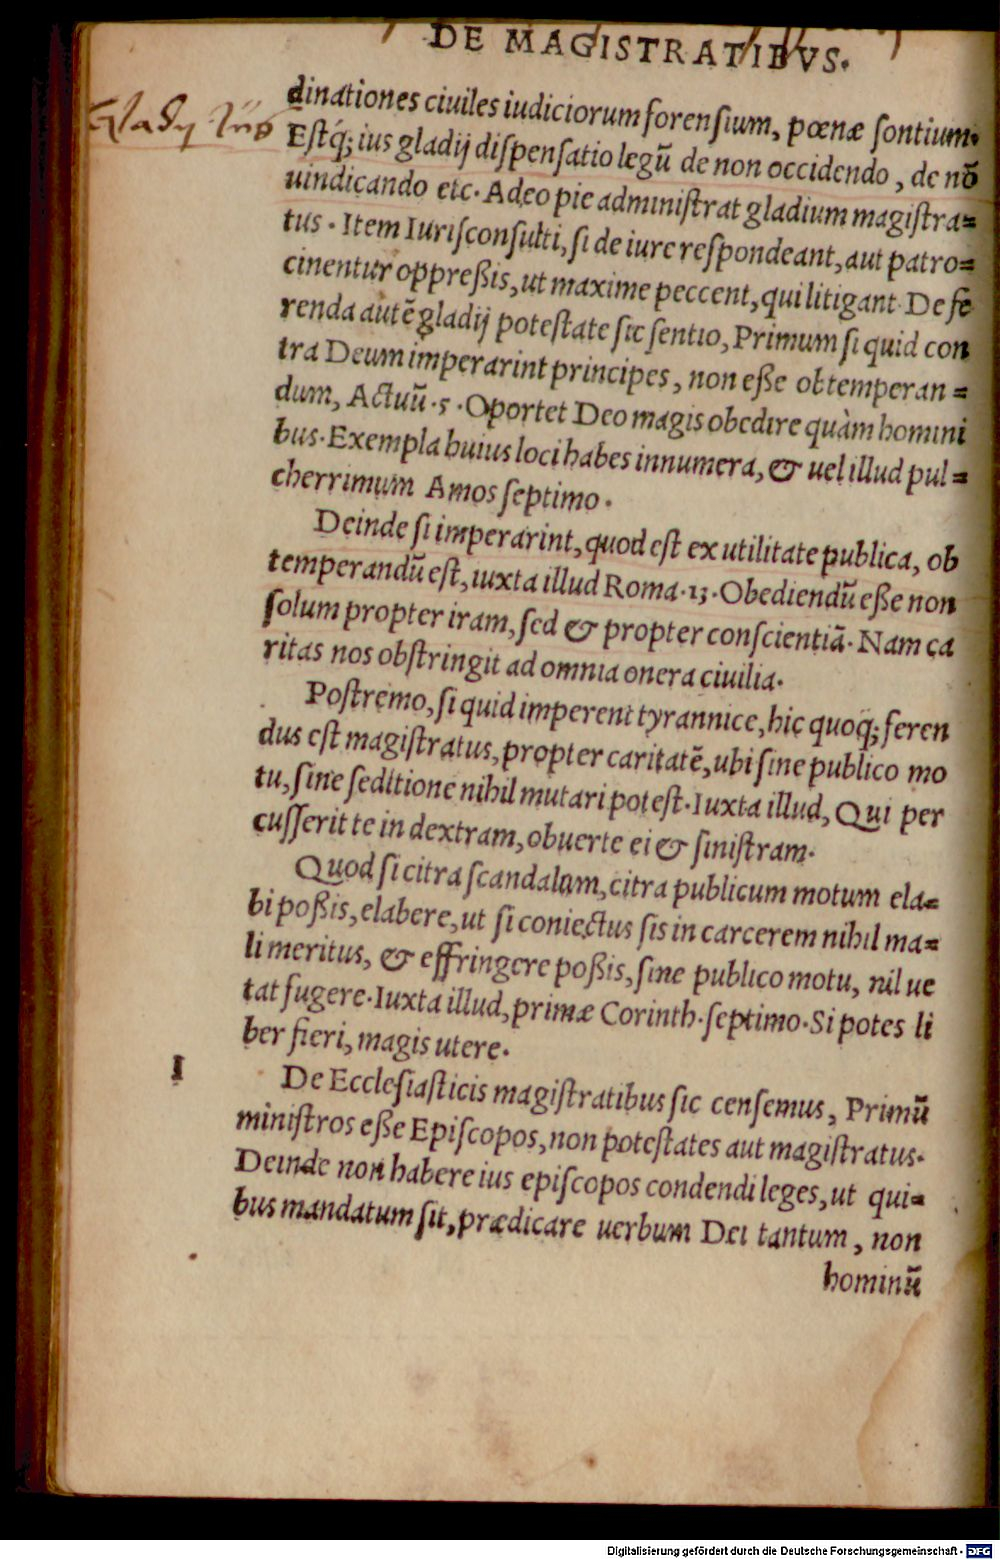 DE MAGISTRATIBVS.
Glady Ius
dinationes ciuiles iudiciorum forensium, pœnæ sontium.
Estq́; ius gladij dispensatio legũ de non occidendo, de nõ
uindicando etc. Adeo pie administrat gladium magistra=
tus. Item Iurisconsulti, si de iure respondeant, aut patro=
cinentur oppreßis, ut maxime peccent, qui litigant. De fe
renda autẽ gladij potestate sic sentio, Primum si quid con
tra Deum imperarint principes, non eße obtemperan=
dum, Actuũ.5. Oportet Deo magis obedire quàm homini
bus. Exempla huius loci habes innumera, & uel illud pul=
cherrimum Amos septimo.
Deinde si imperarint, quod est ex utilitate publica, ob
temperandũ est, iuxta illud Roma.13. Obediendũ eße non
solum propter iram, sed & propter conscientiã. Nam ca
ritas nos obstringit ad omnia onera ciuilia.
Postremo, si quid imperent tyrannice, hic quoq́; feren
dus est magistratus, propter caritatẽ, ubi sine publico mo
tu, sine seditione nihil mutari potest. Iuxta illud, Qui per
cusserit te in dextram, obuerte ei & sinistram.
Quod si citra scandalum, citra publicum motum ela=
bi poßis, elabere, ut si coniectus sis in carcerem nihil ma=
li meritus, & effringere poßis, sine publico motu, nil ue
tat fugere. Iuxta illud, primæ Corinth. septimo. Si potes li
ber fieri, magis utere.
I
De Ecclesiasticis magistratibus sic censemus, Primũ
ministros eße Episcopos, non potestates aut magistratus.
Deinde non habere ius episcopos condendi leges, ut qui=
bus mandatum sit, prædicare uerbum Dei tantum, non
hominũ
Digitalisierung gefördert durch die Deutsche Forschungsgemeinschaft - DFG